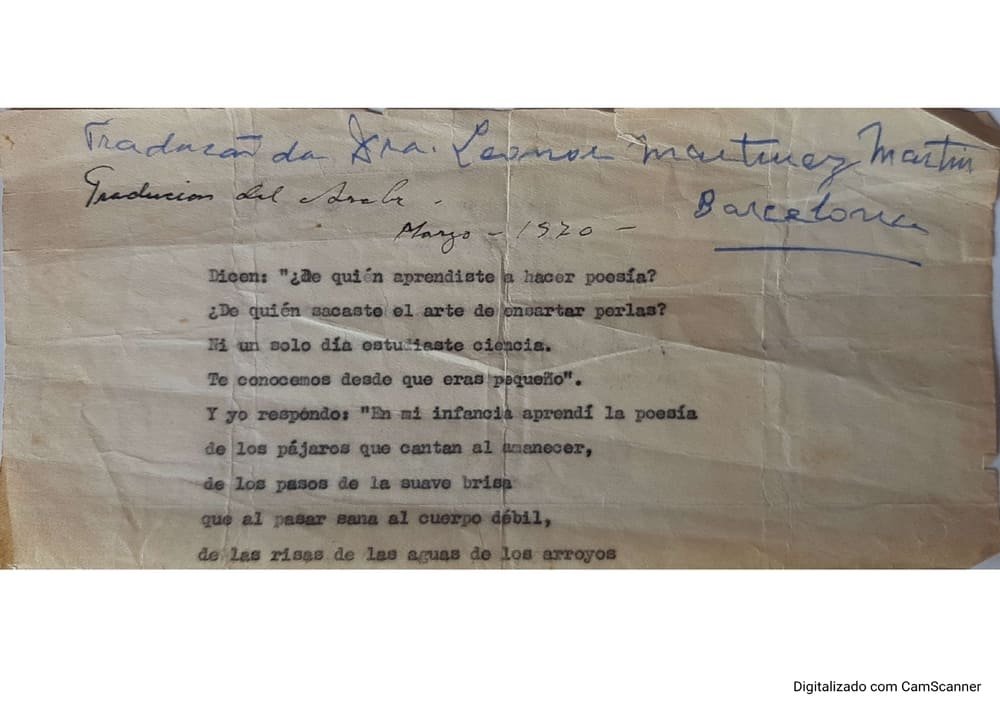 Traducão da Dra. Leonor Martinez Martin
Traducion del Arabe -
Barcelona
Marzo - 1970 -
Dicen: "¿De quién aprendiste a hacer poesía?
¿De quién sacaste el arte de ensartar perlas?
Ni un solo día estudiaste ciencia.
Te conocemos desde que eras pequeño".
Y yo respondo: "En mi infancia aprendí la poesía
de los pájaros que cantan al amanecer,
de los pasos de la suave brisa
que al pasar sana al cuerpo débil,
de las risas de las aguas de los arroyos
Digitalizado com CamScanner